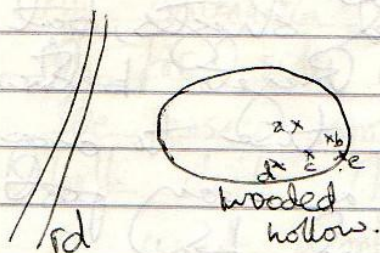 a x
x b
d x
x c
x e
wooded
rd
hollow.